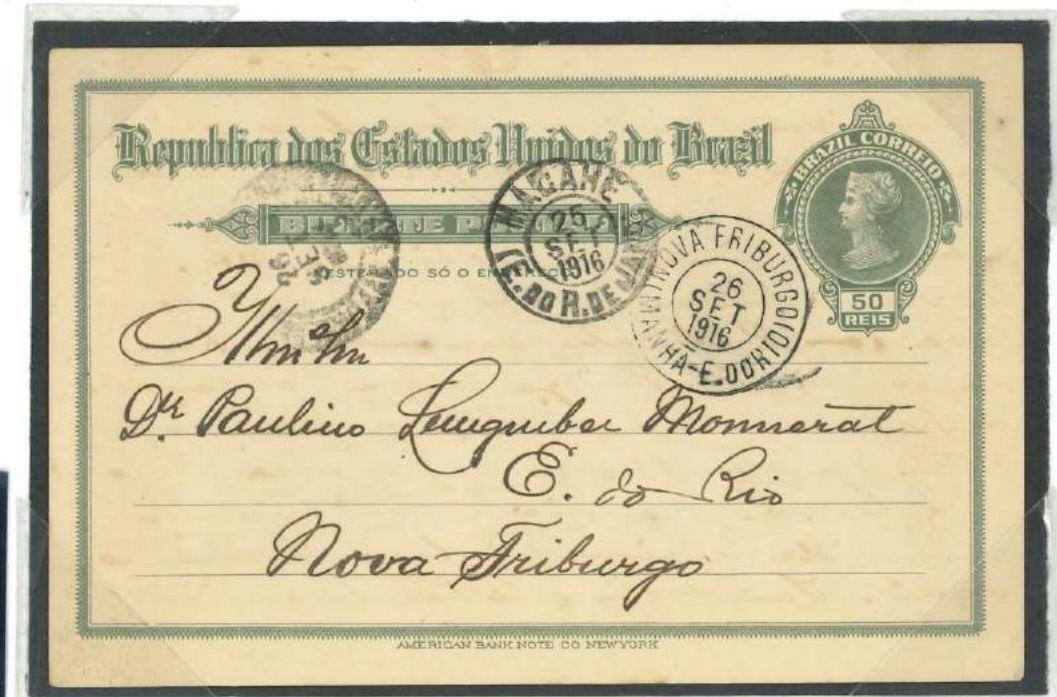 Republica dos Estados Unidos do Brazil
BRAZIL CORREIO
50
REIS
BILHETE POSTAL
NESTE LADO SÓ O ENDEREÇO
MACAHÉ
25
SET
1916
(E. DO R. DE JANº)
NOVA FRIBURGO
26
SET
1916
MANHÃ-E. DO RIO
SET
26
Dr. Paulino Lengruber Monnerat
E. do Rio
Nova Friburgo
AMERICAN BANK NOTE CO NEW YORK